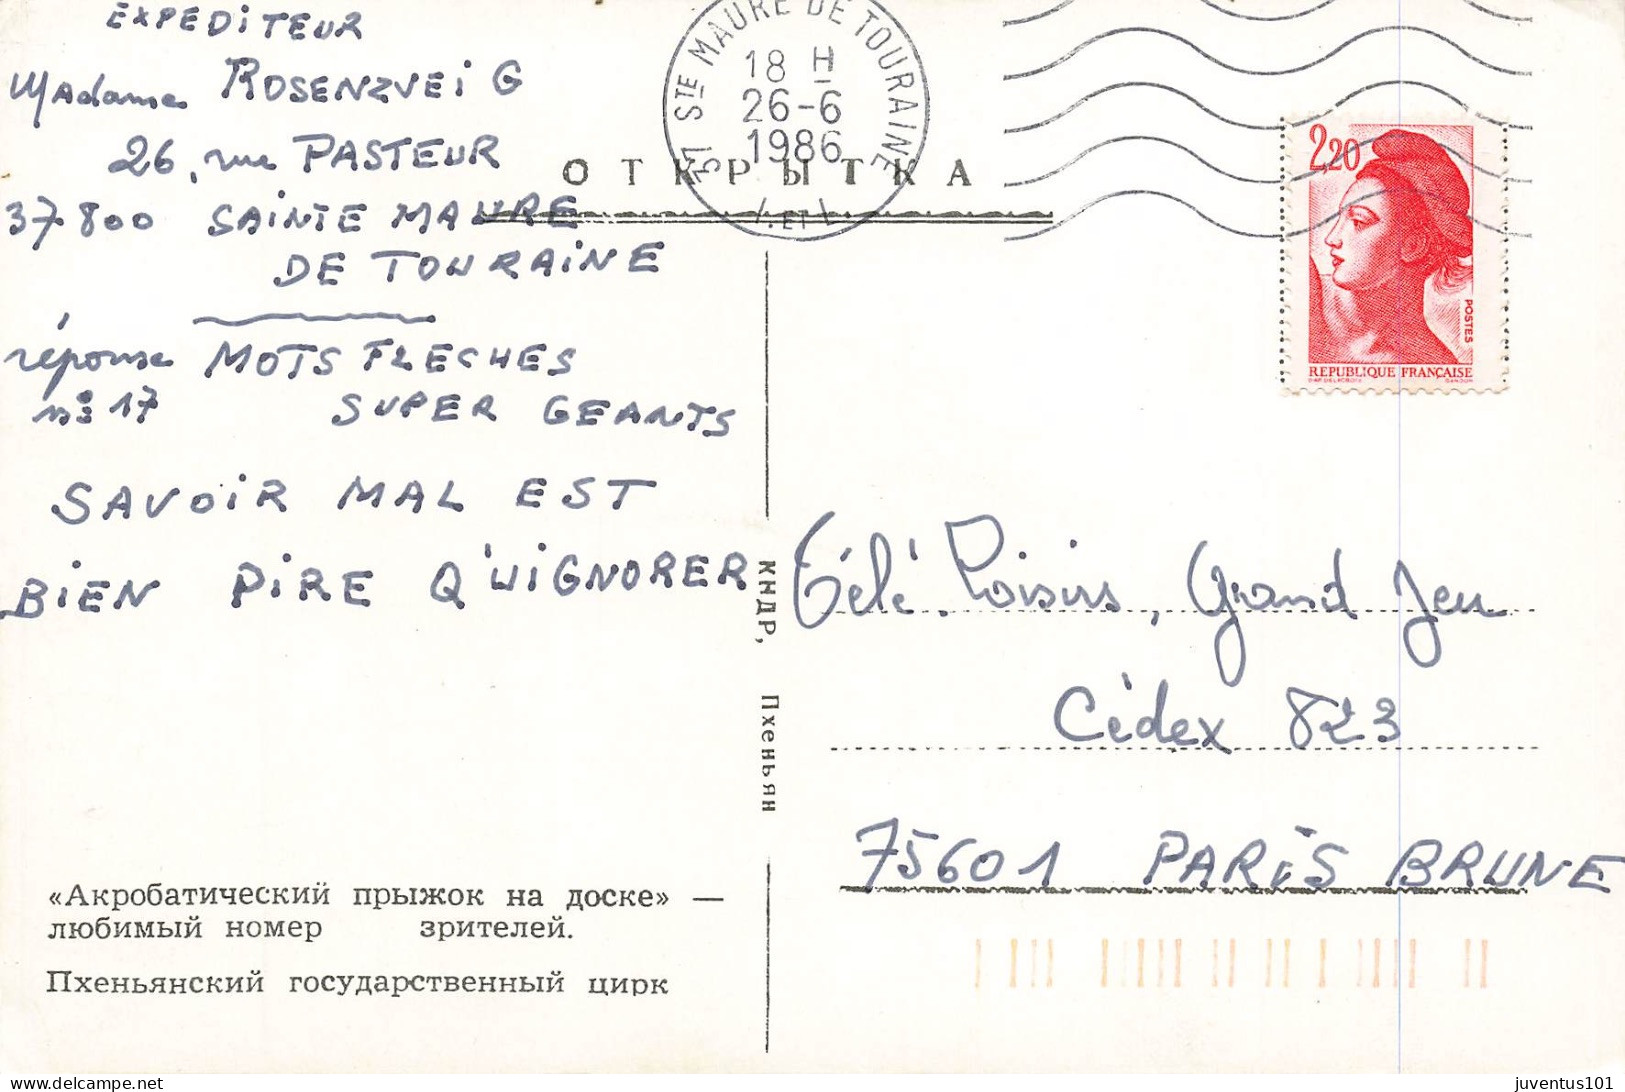 EXPEDITEUR
Madame ROSENZVEIG
26, rue PASTEUR
37800 SAINTE MAURE
DE TOURAINE
réponse MOTS FLECHES
n° 17 SUPER GEANTS
SAVOIR MAL EST
BIEN PIRE Q'UIGNORER
37 STE MAURE DE TOURAINE
18 H
26-6
1986
I.ET L
ОТКРЫТКА
2,20
POSTES
REPUBLIQUE FRANÇAISE
D'AP. DELACROIX GANDON
КНДР, Пхеньян
Télé. Loisirs, Grand Jeu
Cédex 823
75601 PARIS BRUNE
«Акробатический прыжок на доске» —
любимый номер зрителей.
Пхеньянский государственный цирк
juventus101